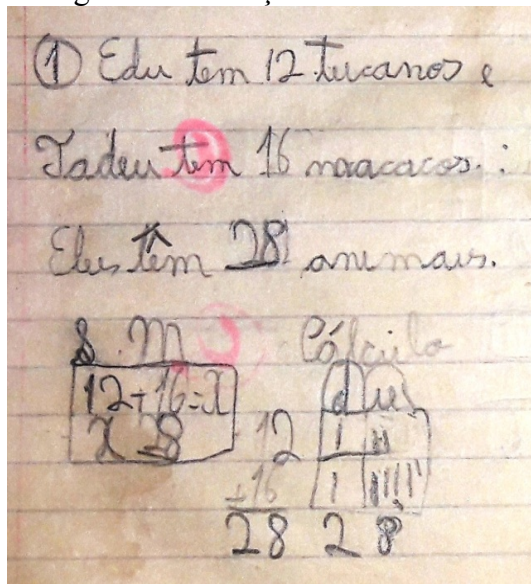 ① Edu tem 12 tucanos e
Tadeu tem 16 macacos. :
Eles têm 28 animais.
S. M Cálculo
12+16=X
X 28
d u
12
+16
28 2 8